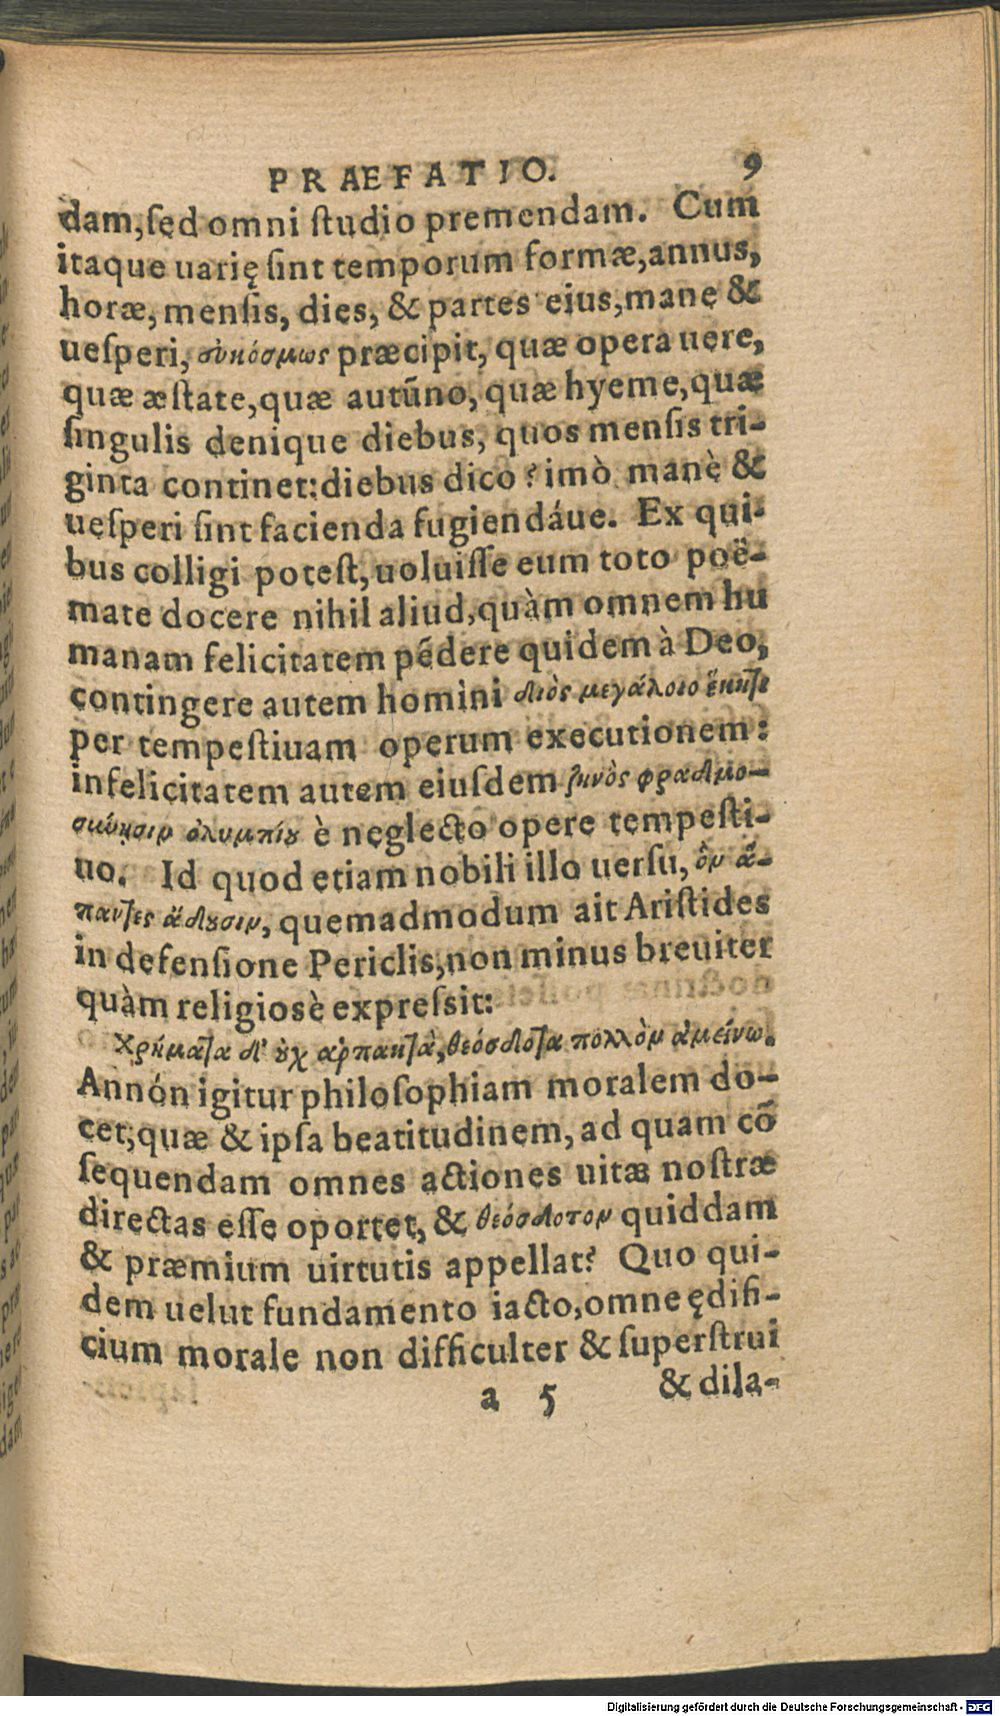 PRAEFATIO. 9
dam, sęd omni studio premendam. Cum
itaque uarię sint temporum formæ, annus,
horæ, mensis, dies, & partes eius, manę &
uesperi, συκόσμως præcipit, quæ opera uere,
quæ æstate, quæ autūno, quæ hyeme, quæ
singulis denique diebus, quos mensis tri-
ginta continet: diebus dico? imò manè &
uesperi sint facienda fugiendáue. Ex qui-
bus colligi potest, uoluisse eum toto poë-
mate docere nihil aliud, quàm omnem hu
manam felicitatem pēdere quidem à Deo,
contingere autem homini διὸς μεγάλοιο ἕκητι
per tempestiuam operum executionem:
infelicitatem autem eiusdem ζηνὸς φραδμο-
σύνησιν ὀλυμπίου è nęglecto opere tempesti-
uo. Id quod etiam nobili illo uersu, ὃν ἅ-
παντες ᾄδουσιν, quemadmodum ait Aristides
in defensione Periclis, non minus breuiter
quàm religiosè expressit:
Χρήματα δ' οὐχ ἁρπακτὰ, θεόσδοτα πολλὸν ἀμείνω.
Annón igitur philosophiam moralem do-
cet; quæ & ipsa beatitudinem, ad quam cō
sequendam omnes actiones uitæ nostræ
directas esse oportet, & θεόσδοτον quiddam
& præmium uirtutis appellat? Quo qui-
dem uelut fundamento iacto, omne ędifi-
cium morale non difficulter & superstrui
a 5 & dila-
Digitalisierung gefördert durch die Deutsche Forschungsgemeinschaft - DFG